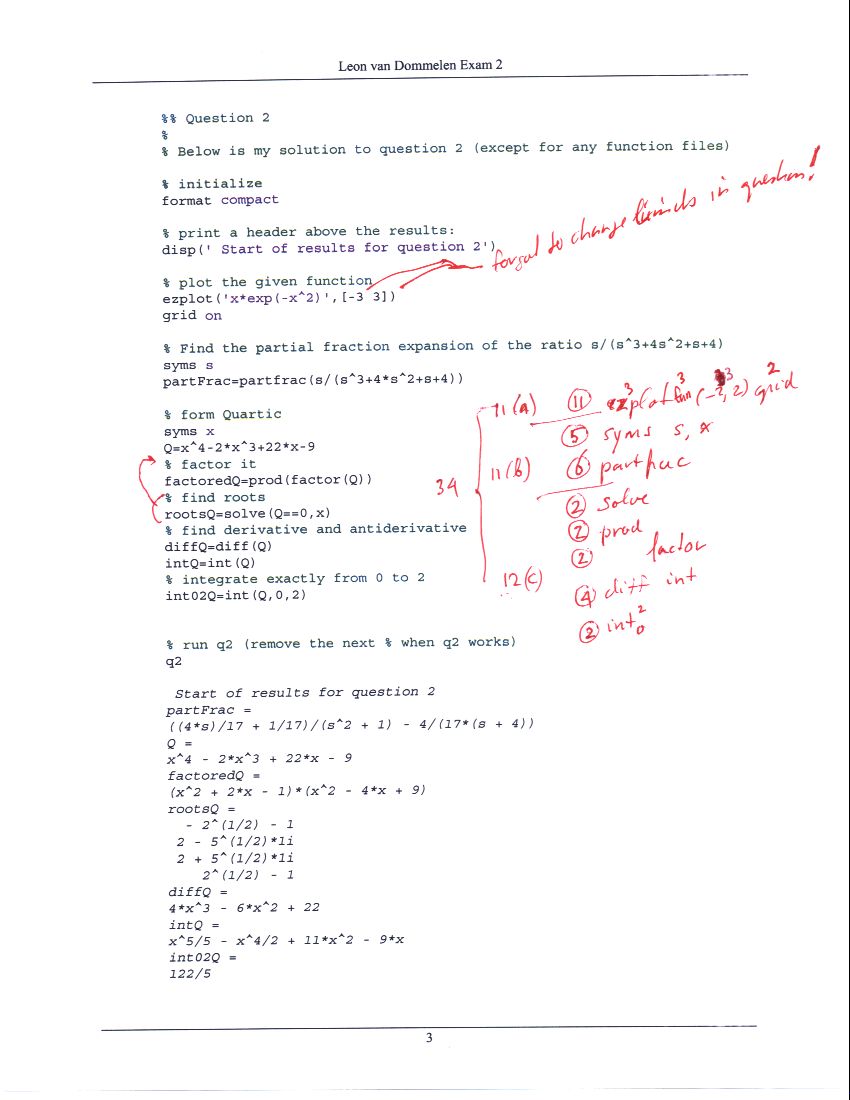 Leon van Dommelen Exam 2
%% Question 2
%
% Below is my solution to question 2 (except for any function files)
% initialize
format compact
% print a header above the results:
disp(' Start of results for question 2')
forgot to change limits in question!
% plot the given function
ezplot('x*exp(-x^2)',[-3 3])
grid on
% Find the partial fraction expansion of the ratio s/(s^3+4s^2+s+4)
syms s
partFrac=partfrac(s/(s^3+4*s^2+s+4))
% form Quartic
syms x
Q=x^4-2*x^3+22*x-9
% factor it
factoredQ=prod(factor(Q))
% find roots
rootsQ=solve(Q==0,x)
% find derivative and antiderivative
diffQ=diff(Q)
intQ=int(Q)
% integrate exactly from 0 to 2
int02Q=int(Q,0,2)
34
11(a) 11 ezplot fun (-2, 2) grid
3 3 3 2
5 syms s, x
11(b) 6 partfrac
2 solve
2 prod
2 factor
12(c) 4 diff int
2 int 2 0
% run q2 (remove the next % when q2 works)
q2
Start of results for question 2
partFrac =
((4*s)/17 + 1/17)/(s^2 + 1) - 4/(17*(s + 4))
Q =
x^4 - 2*x^3 + 22*x - 9
factoredQ =
(x^2 + 2*x - 1)*(x^2 - 4*x + 9)
rootsQ =
- 2^(1/2) - 1
2 - 5^(1/2)*1i
2 + 5^(1/2)*1i
2^(1/2) - 1
diffQ =
4*x^3 - 6*x^2 + 22
intQ =
x^5/5 - x^4/2 + 11*x^2 - 9*x
int02Q =
122/5
3